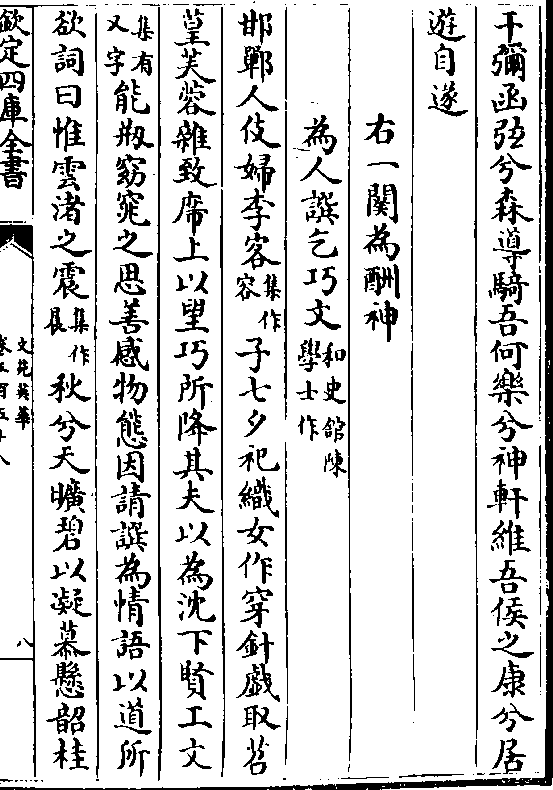 干彌函弦兮森導騎吾何樂兮神軒維吾侯之康兮居
遊自遂
右一闋為酬神
為人譔乞巧文和史館陳學士作
邯鄲人伎婦李客集作容子七夕祀織女作穿針戲取苕
葟芙蓉雜致席上以望巧所降其夫以為沈下賢工文
集有又字能剏窈窕之思善感物態因請譔為情語以道所
欲詞曰惟雲渚之震集作晨秋兮天曠碧以凝慕懸韶桂
欽定四庫全書
文苑英華
卷三百五十八
八